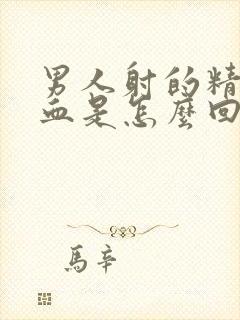 男人射的精
血是怎麼回
馬辛